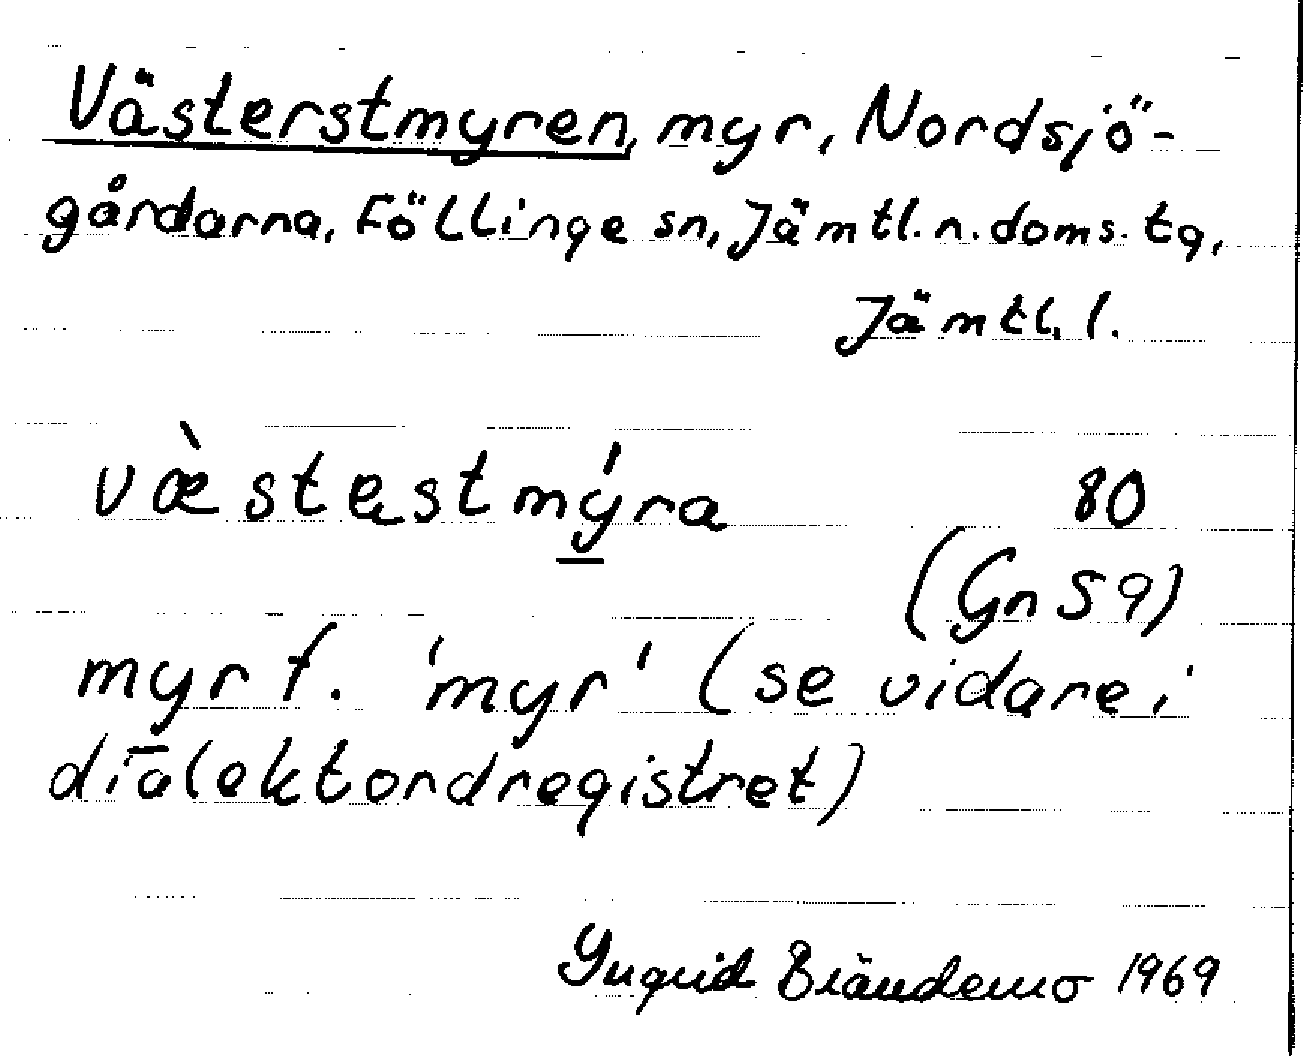 Västerstmyren, myr, Nordsjö-
gårdarna, Föllinge sn, Jämtl. n. doms. tg,
Jämtl. l.
væ̀stestmýra 80
(Gn 59)
myr f. 'myr' (se vidare i
dialektordregistret)
Ingrid Brändemo 1969